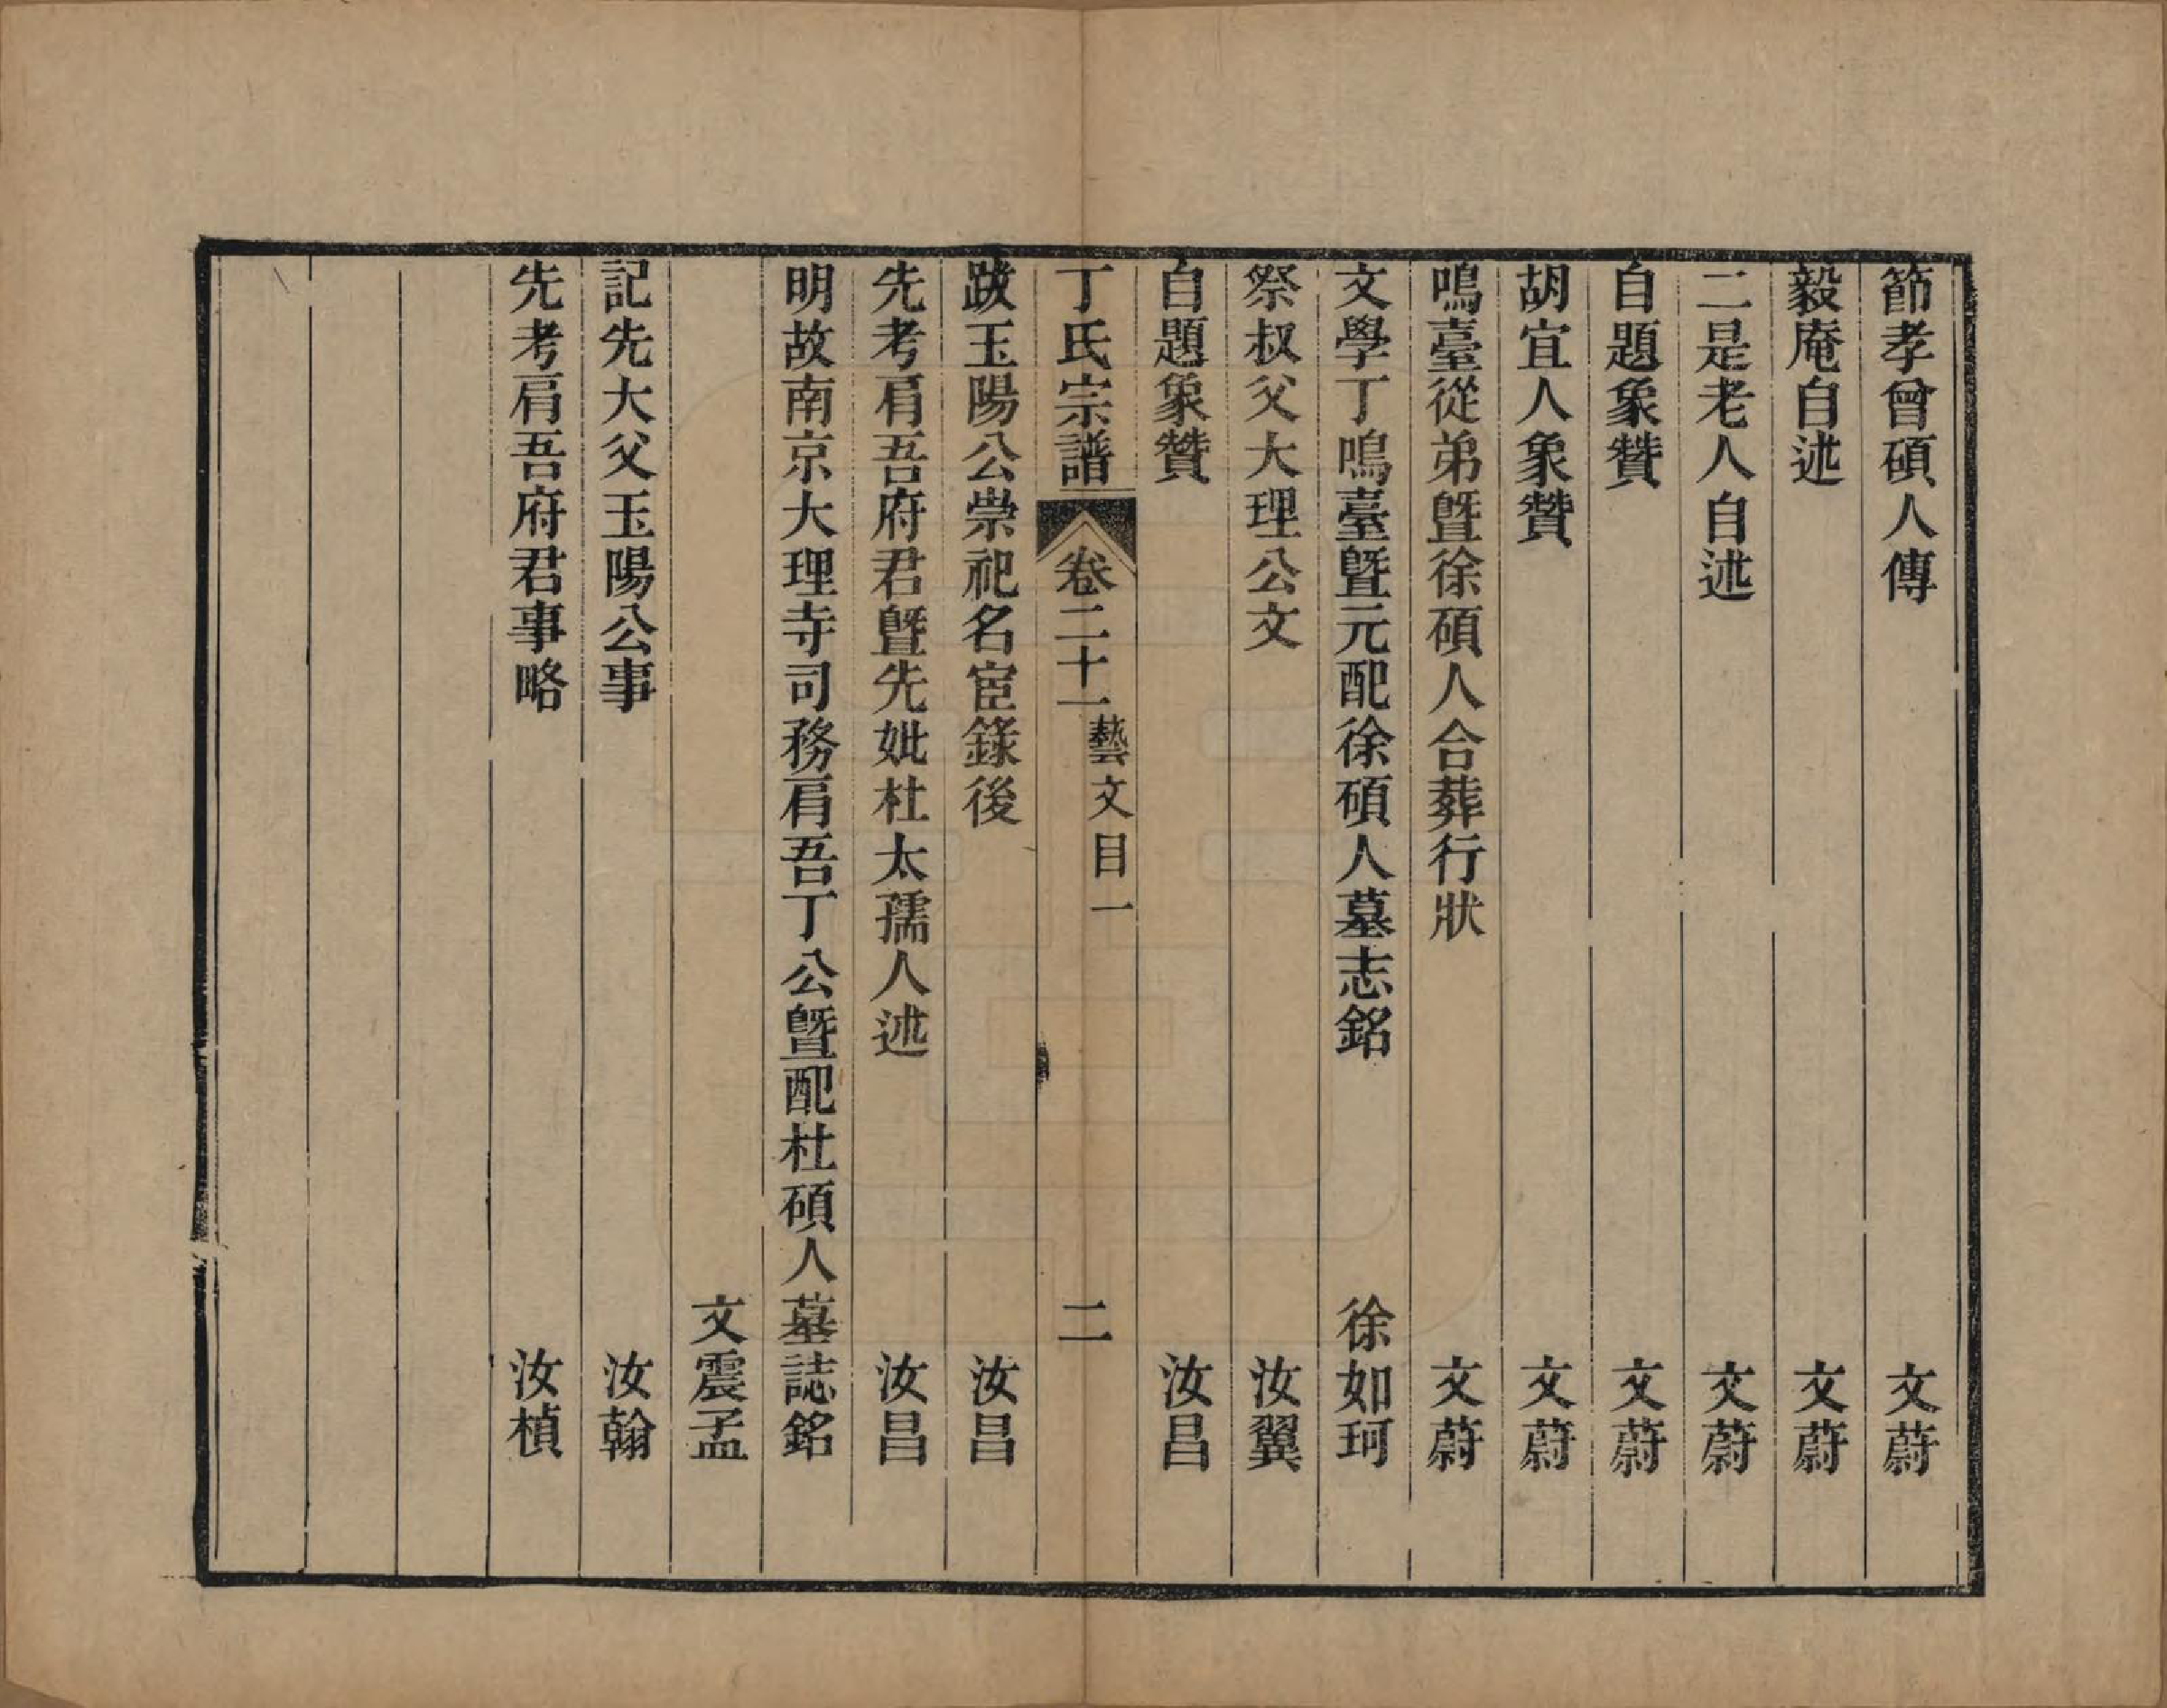 節孝曾碩人傳　文蔚
毅庵自述　文蔚
二是老人自述　文蔚
自題象贊　文蔚
胡宜人象贊　文蔚
鳴臺從弟曁徐碩人合葬行狀　文蔚
文學丁鳴臺曁元配徐碩人墓志銘　徐如珂
祭叔父大理公文　汝翼
自題象贊　汝昌
丁氏宗譜　卷二十一　藝文目一　二
跋玉陽公崇祀名宦錄後　汝昌
先考肩吾府君曁先妣杜太孺人述　汝昌
明故南京大理寺司務肩吾丁公曁配杜碩人墓誌銘
文震孟
記先大父玉陽公事　汝翰
先考肩吾府君事略　汝楨